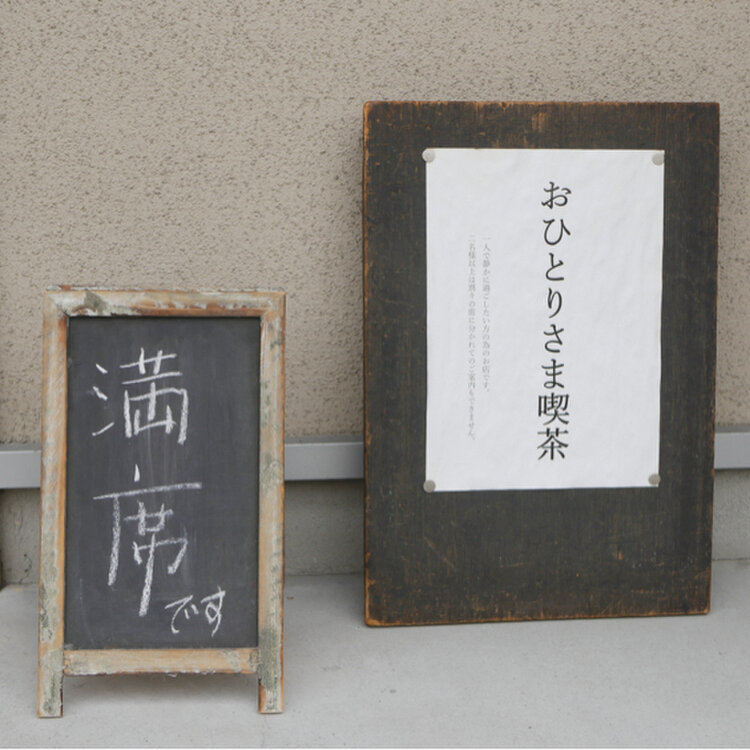 満席
です
おひとりさま喫茶
一人で静かに過ごしたい方の為のお店です。
二名様以上は別々の席に分かれてのご案内もできません。